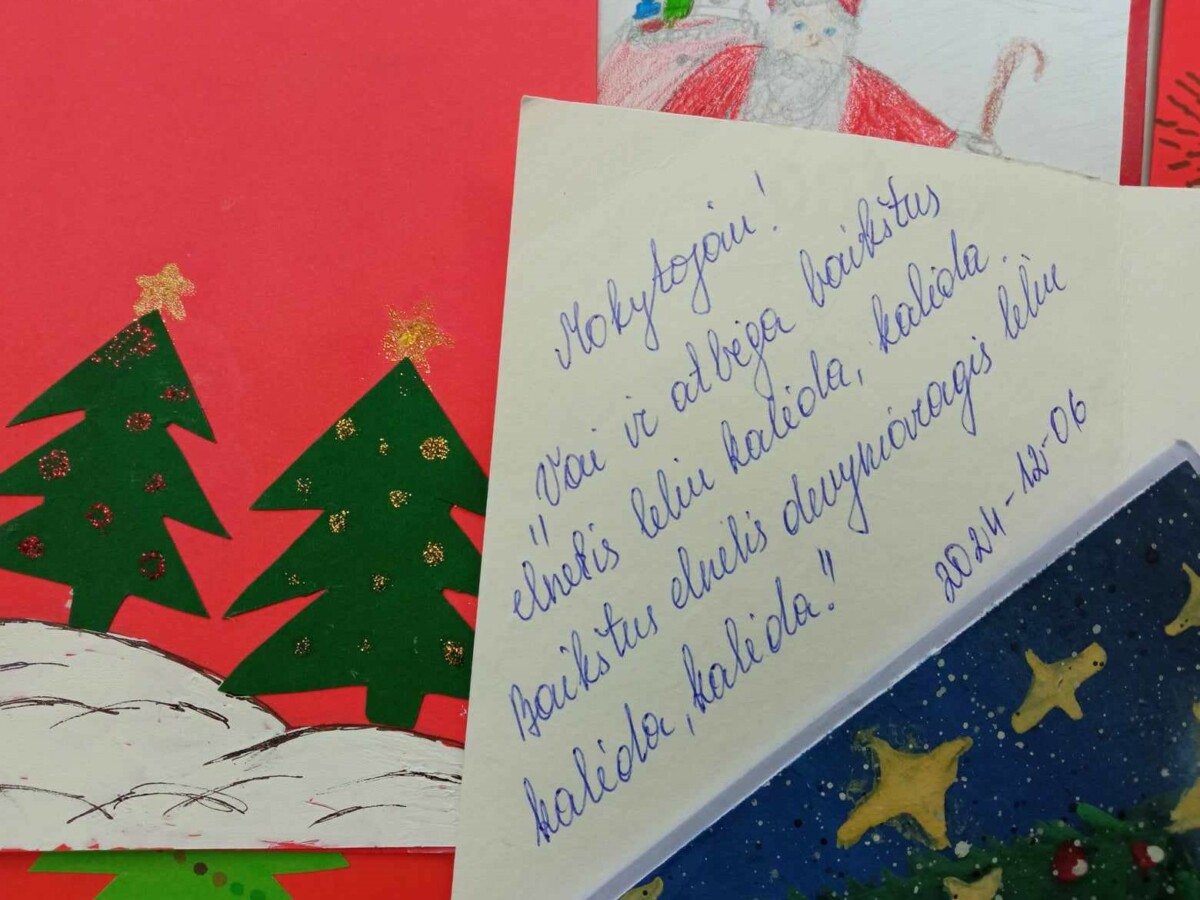 Mokytojai!
"Vai ir atbėga baikštus
elnelis leliu kalėda, kalėda.
Baikštus elnelis devyniaragis leliu
kalėda, kalėda."
2024-12-06